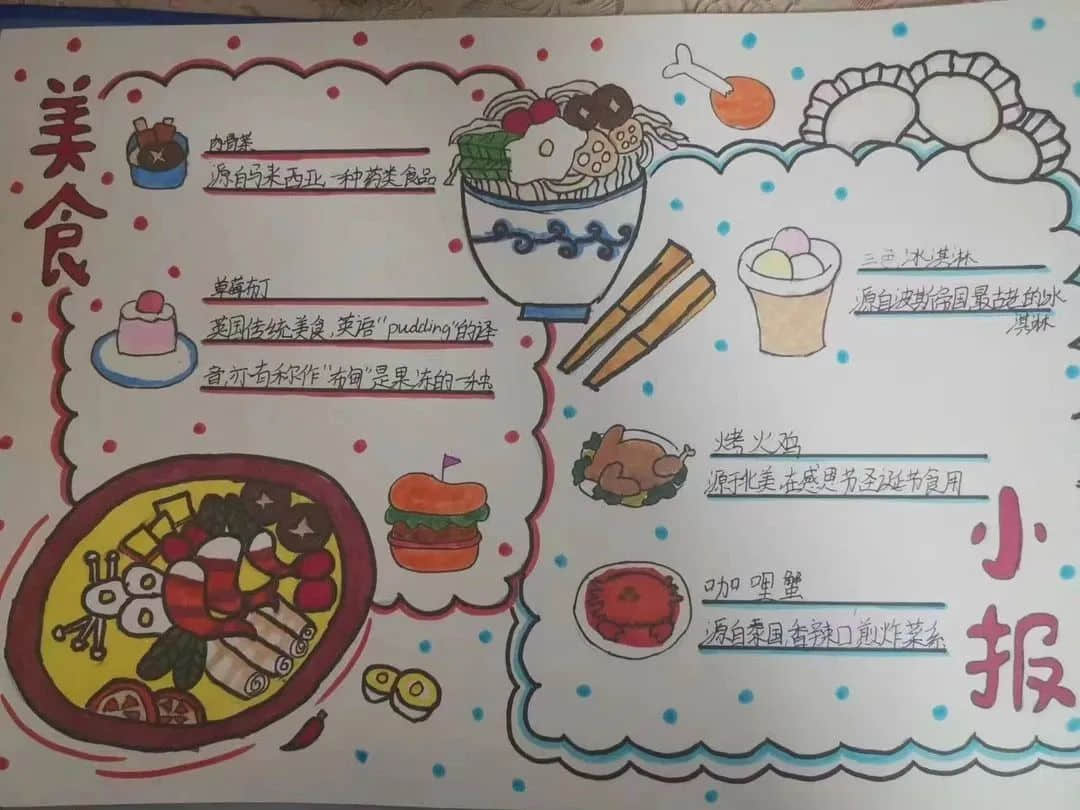 美食
肉骨茶
源自马来西亚一种药类食品
草莓布丁
英国传统美食,英语"pudding"的译
音,亦有称作"布甸"是果冻的一种
三色冰淇淋
源自波斯帝国最古老的冰
淇淋
烤火鸡
源于北美,在感恩节圣诞节食用
咖哩蟹
源自泰国香辣口煎炸菜系
小报